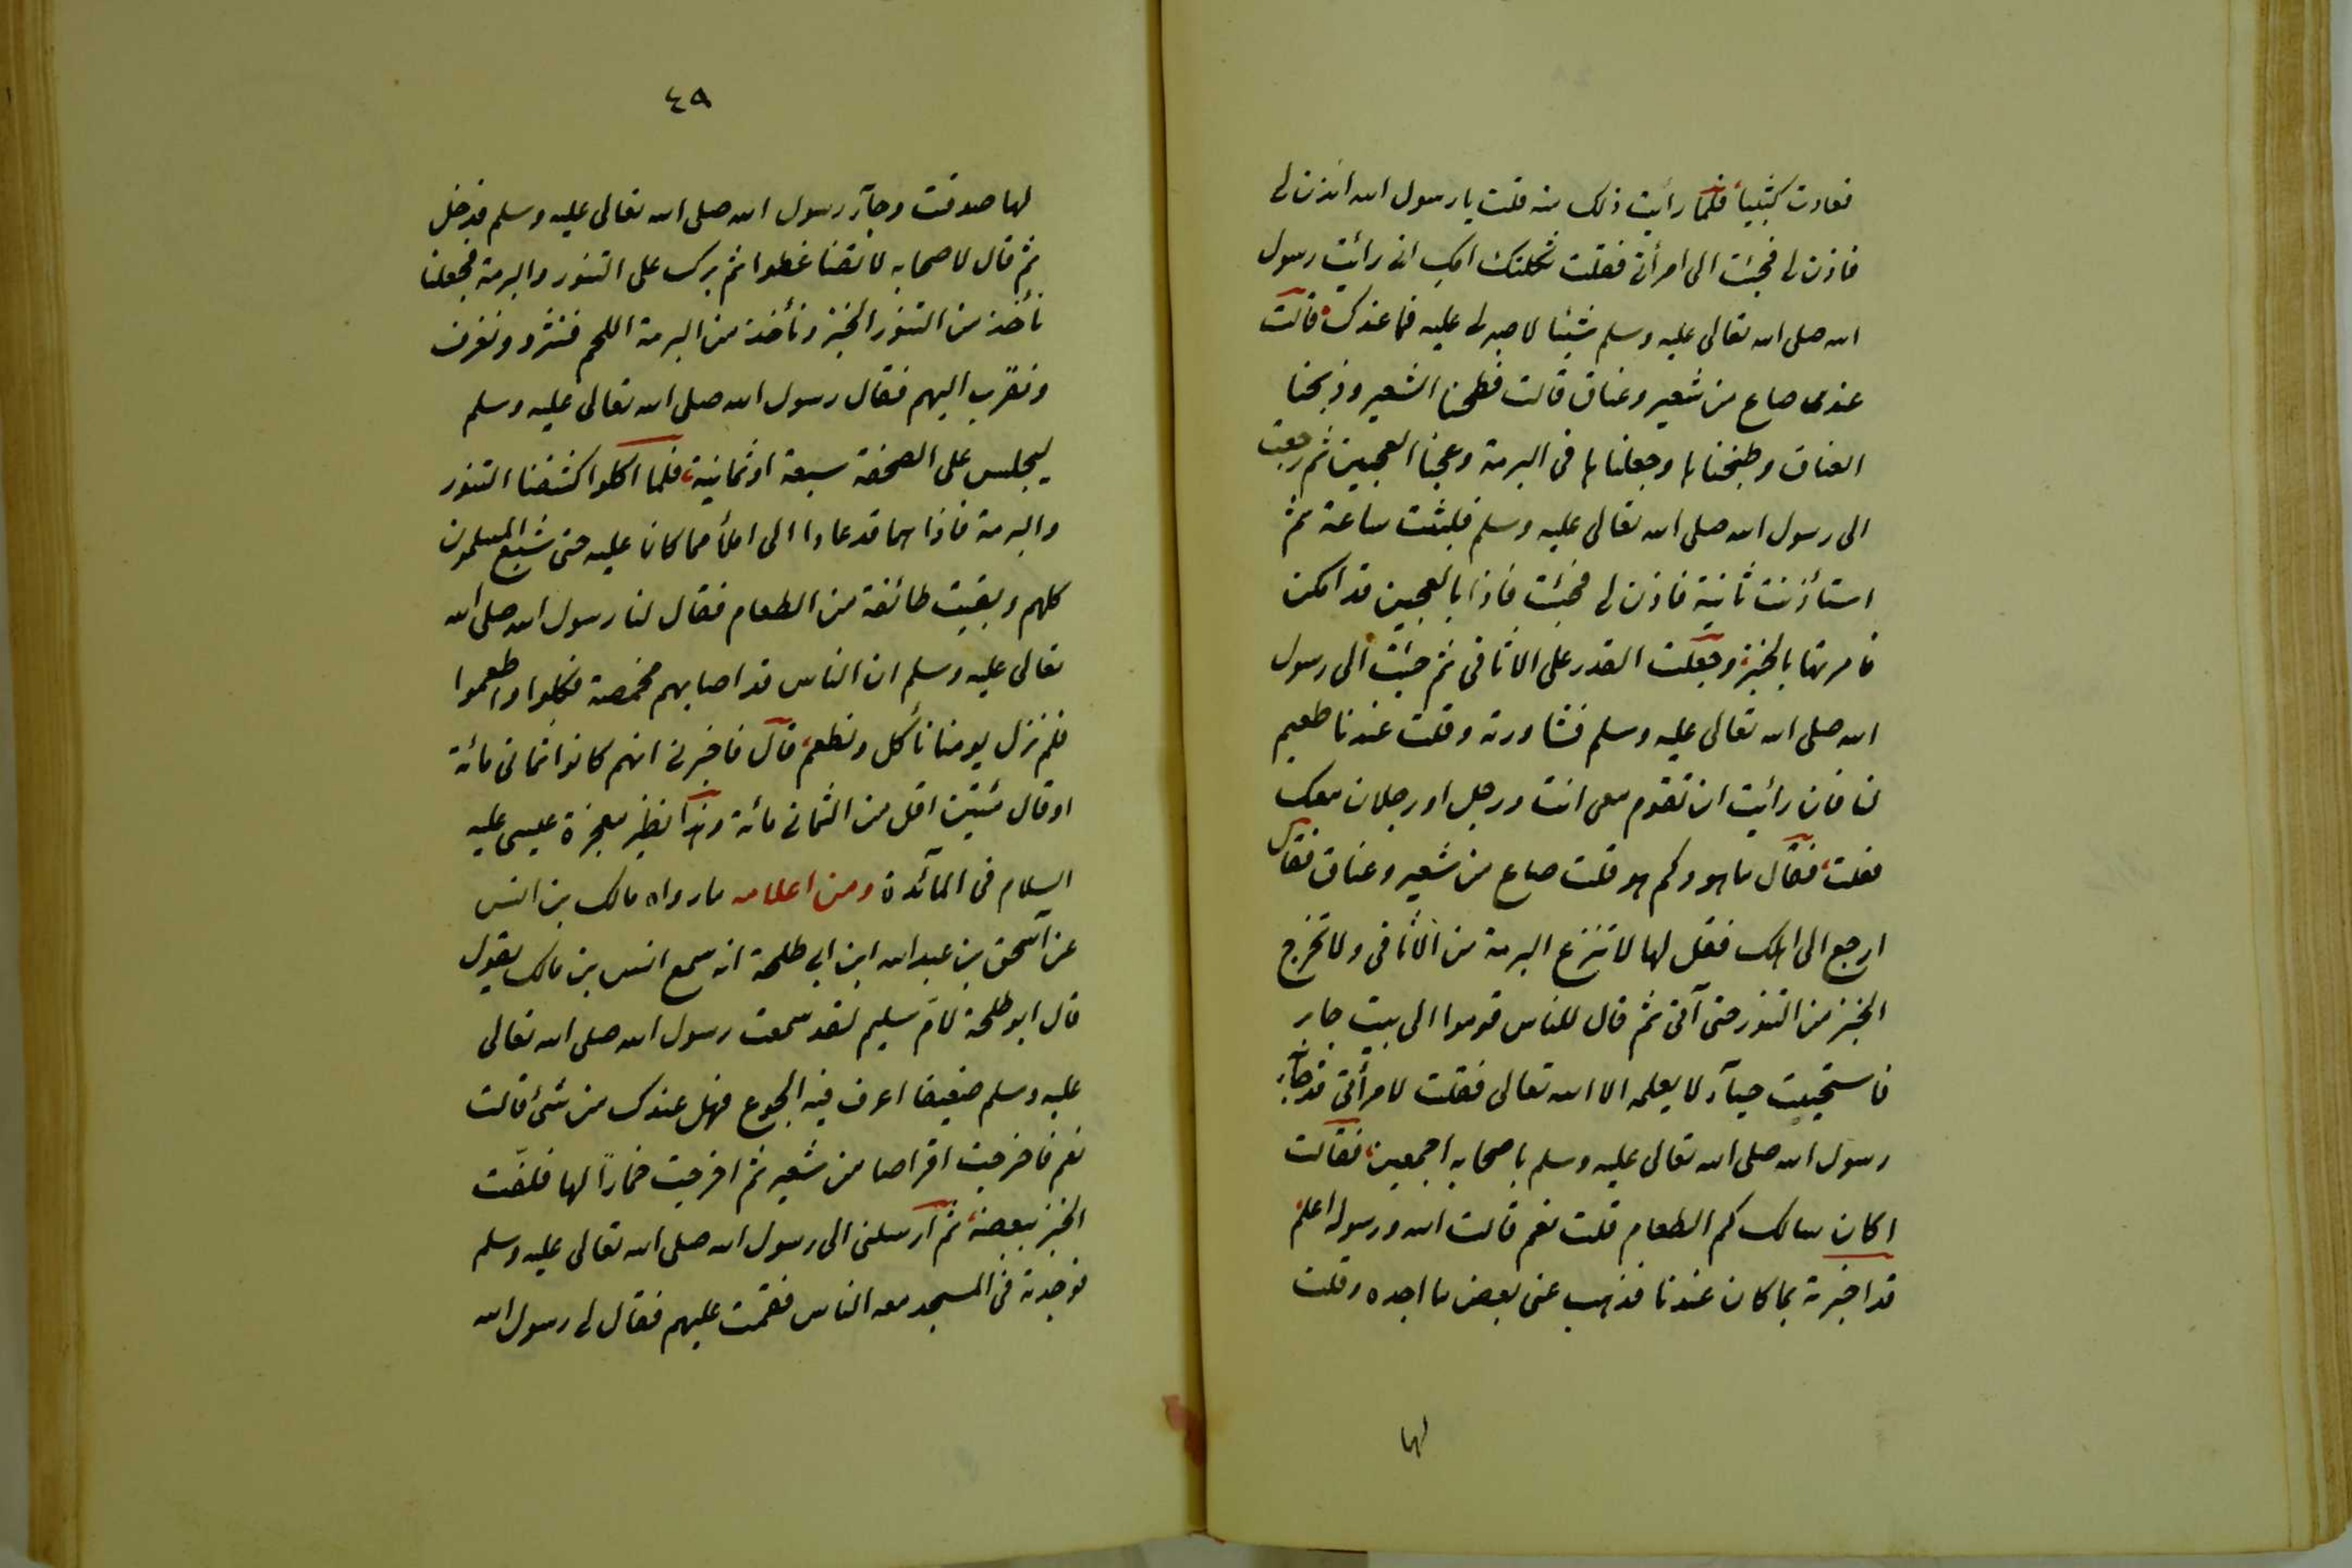 فعادت كثيبا فلما رأيت ذلك منه قلت يا رسول الله ائذن لى
فاذن لى فجئت الى امرأتى فقلت ثكلتك امك انى رأيت رسول
الله صلى الله تعالى عليه وسلم شيئا لا صبر لى عليه فما عندك قالت
عندى صاع من شعير وعناق قالت فطحنا الشعير وذبحنا
العناق وطبخناها وجعلناها فى البرمة وعجنا العجين ثم رجعت
الى رسول الله صلى الله تعالى عليه وسلم فلبثت ساعة ثم
استأذنت ثانية فاذن لى فجئت فاذا بالعجين قد امكن
فامرتها بالخبز وجعلت القدر على الاثافى ثم جئت الى رسول
الله صلى الله تعالى عليه وسلم فشاورته وقلت عندنا طعيم
لنا فان رأيت ان تقوم معى انت ورجل او رجلان معك
فعلت فقال ما هو وكم هو قلت صاع من شعير وعناق فقال
ارجع الى اهلك فقل لها لا تنزع البرمة من الاثافى ولا تخرج
الخبز من التنور حتى آتى ثم قال للناس قوموا الى بيت جابر
فاستحييت حيآء لا يعلمه الا الله تعالى فقلت لامرأتى قد جآء
رسول الله صلى الله تعالى عليه وسلم باصحابه اجمعين فقالت
اكان سالك كم الطعام قلت نعم قالت الله ورسوله اعلم
قد اخبرته بما كان عندنا فذهب عنى بعض ما اجده وقلت
لها
٤٩
لها صدقت وجآء رسول الله صلى الله تعالى عليه وسلم فدخل
ثم قال لاصحابه لا تضاغطوا ثم برك على التنور والبرمة فجعلنا
نأخذ من التنور الخبز ونأخذ من البرمة اللحم فنثرد ونغرف
ونقرب اليهم فقال رسول الله صلى الله تعالى عليه وسلم
ليجلس على الصحفة سبعة او ثمانية فلما اكلوا كشفنا التنور
والبرمة فاذا هما قد عادا الى املأ مما كانا عليه حتى شبع المسلمون
كلهم وبقيت طائفة من الطعام فقال لنا رسول الله صلى الله
تعالى عليه وسلم ان الناس قد اصابهم مخمصة فكلوا واطعموا
فلم نزل يومنا نأكل ونطعم قال فاخبرنى انهم كانوا ثمانى مائة
او قال مئتين اقل من الثمانى مائة وهذا نظير معجزة عيسى عليه
السلام فى المآئدة ومن اعلامه ما رواه مالك بن انس
عن اسحق بن عبد الله ابن ابى طلحة انه سمع انس بن مالك يقول
قال ابو طلحة لام سليم لقد سمعت رسول الله صلى الله تعالى
عليه وسلم ضعيفا اعرف فيه الجوع فهل عندك من شئ قالت
نعم فاخرجت اقراصا من شعير ثم اخرجت خمارا لها فلفت
الخبز ببعضه ثم ارسلنى الى رسول الله صلى الله تعالى عليه وسلم
فوجدته فى المسجد معه الناس فقمت عليهم فقال لى رسول الله